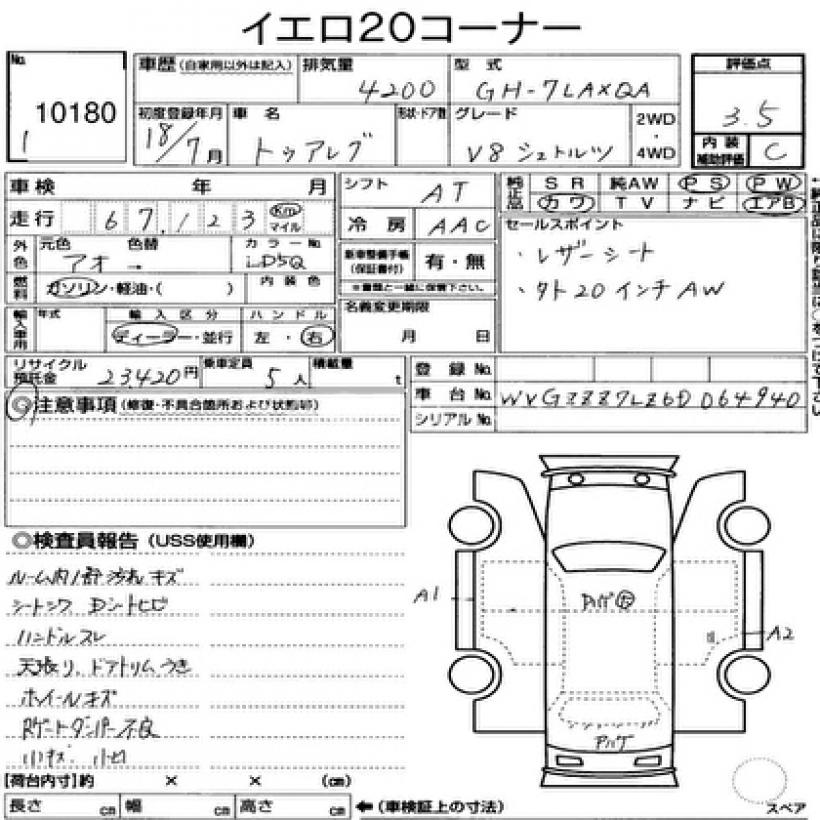 イエロ20コーナー
No. 10180
1
車歴(自家用以外は記入) 排気量 4200 型式 GH-7LAXQA 評価点 3.5
初度登録年月 18/7月 車名 トゥアレグ 形状・ドア数 グレード V8 シュトルツ 2WD・4WD 内装補助評価 C
車検 年 月 シフト AT 純正品 SR 純AW PS PW
走行 67,123 Km マイル 冷房 AAC カワ TV ナビ エアB
外色 元色 アオ 色替 → カラーNo. LD5Q 新車整備手帳(保証書付) 有・無 セールスポイント
燃料 ガソリン・軽油・( ) 内装色 ※書類と一緒に保管下さい。 ・レザーシート
輸入車用 年式 輸入区分 ディーラー・並行 ハンドル 左・右 名義変更期限 月 日 ・タト20インチAW
リサイクル預託金 23420円 乗車定員 5人 積載量 t 登録No.
車台No. WVGZZZ7LZ6D064940
シリアルNo.
◎注意事項(修復・不具合箇所および状態等)
◎検査員報告(USS使用欄)
ルーム内1部汚れ キズ
シートシワ Dシートヒビ
ハンドルスレ
天張り、ドアトリムうき
ホイールキズ
Rゲートダンパー不良
小キズ 小凹
A1
A2
アハゲ
【荷台内寸】約 × × (cm)
長さ cm 幅 cm 高さ cm ←(車検証上の寸法)
スペア